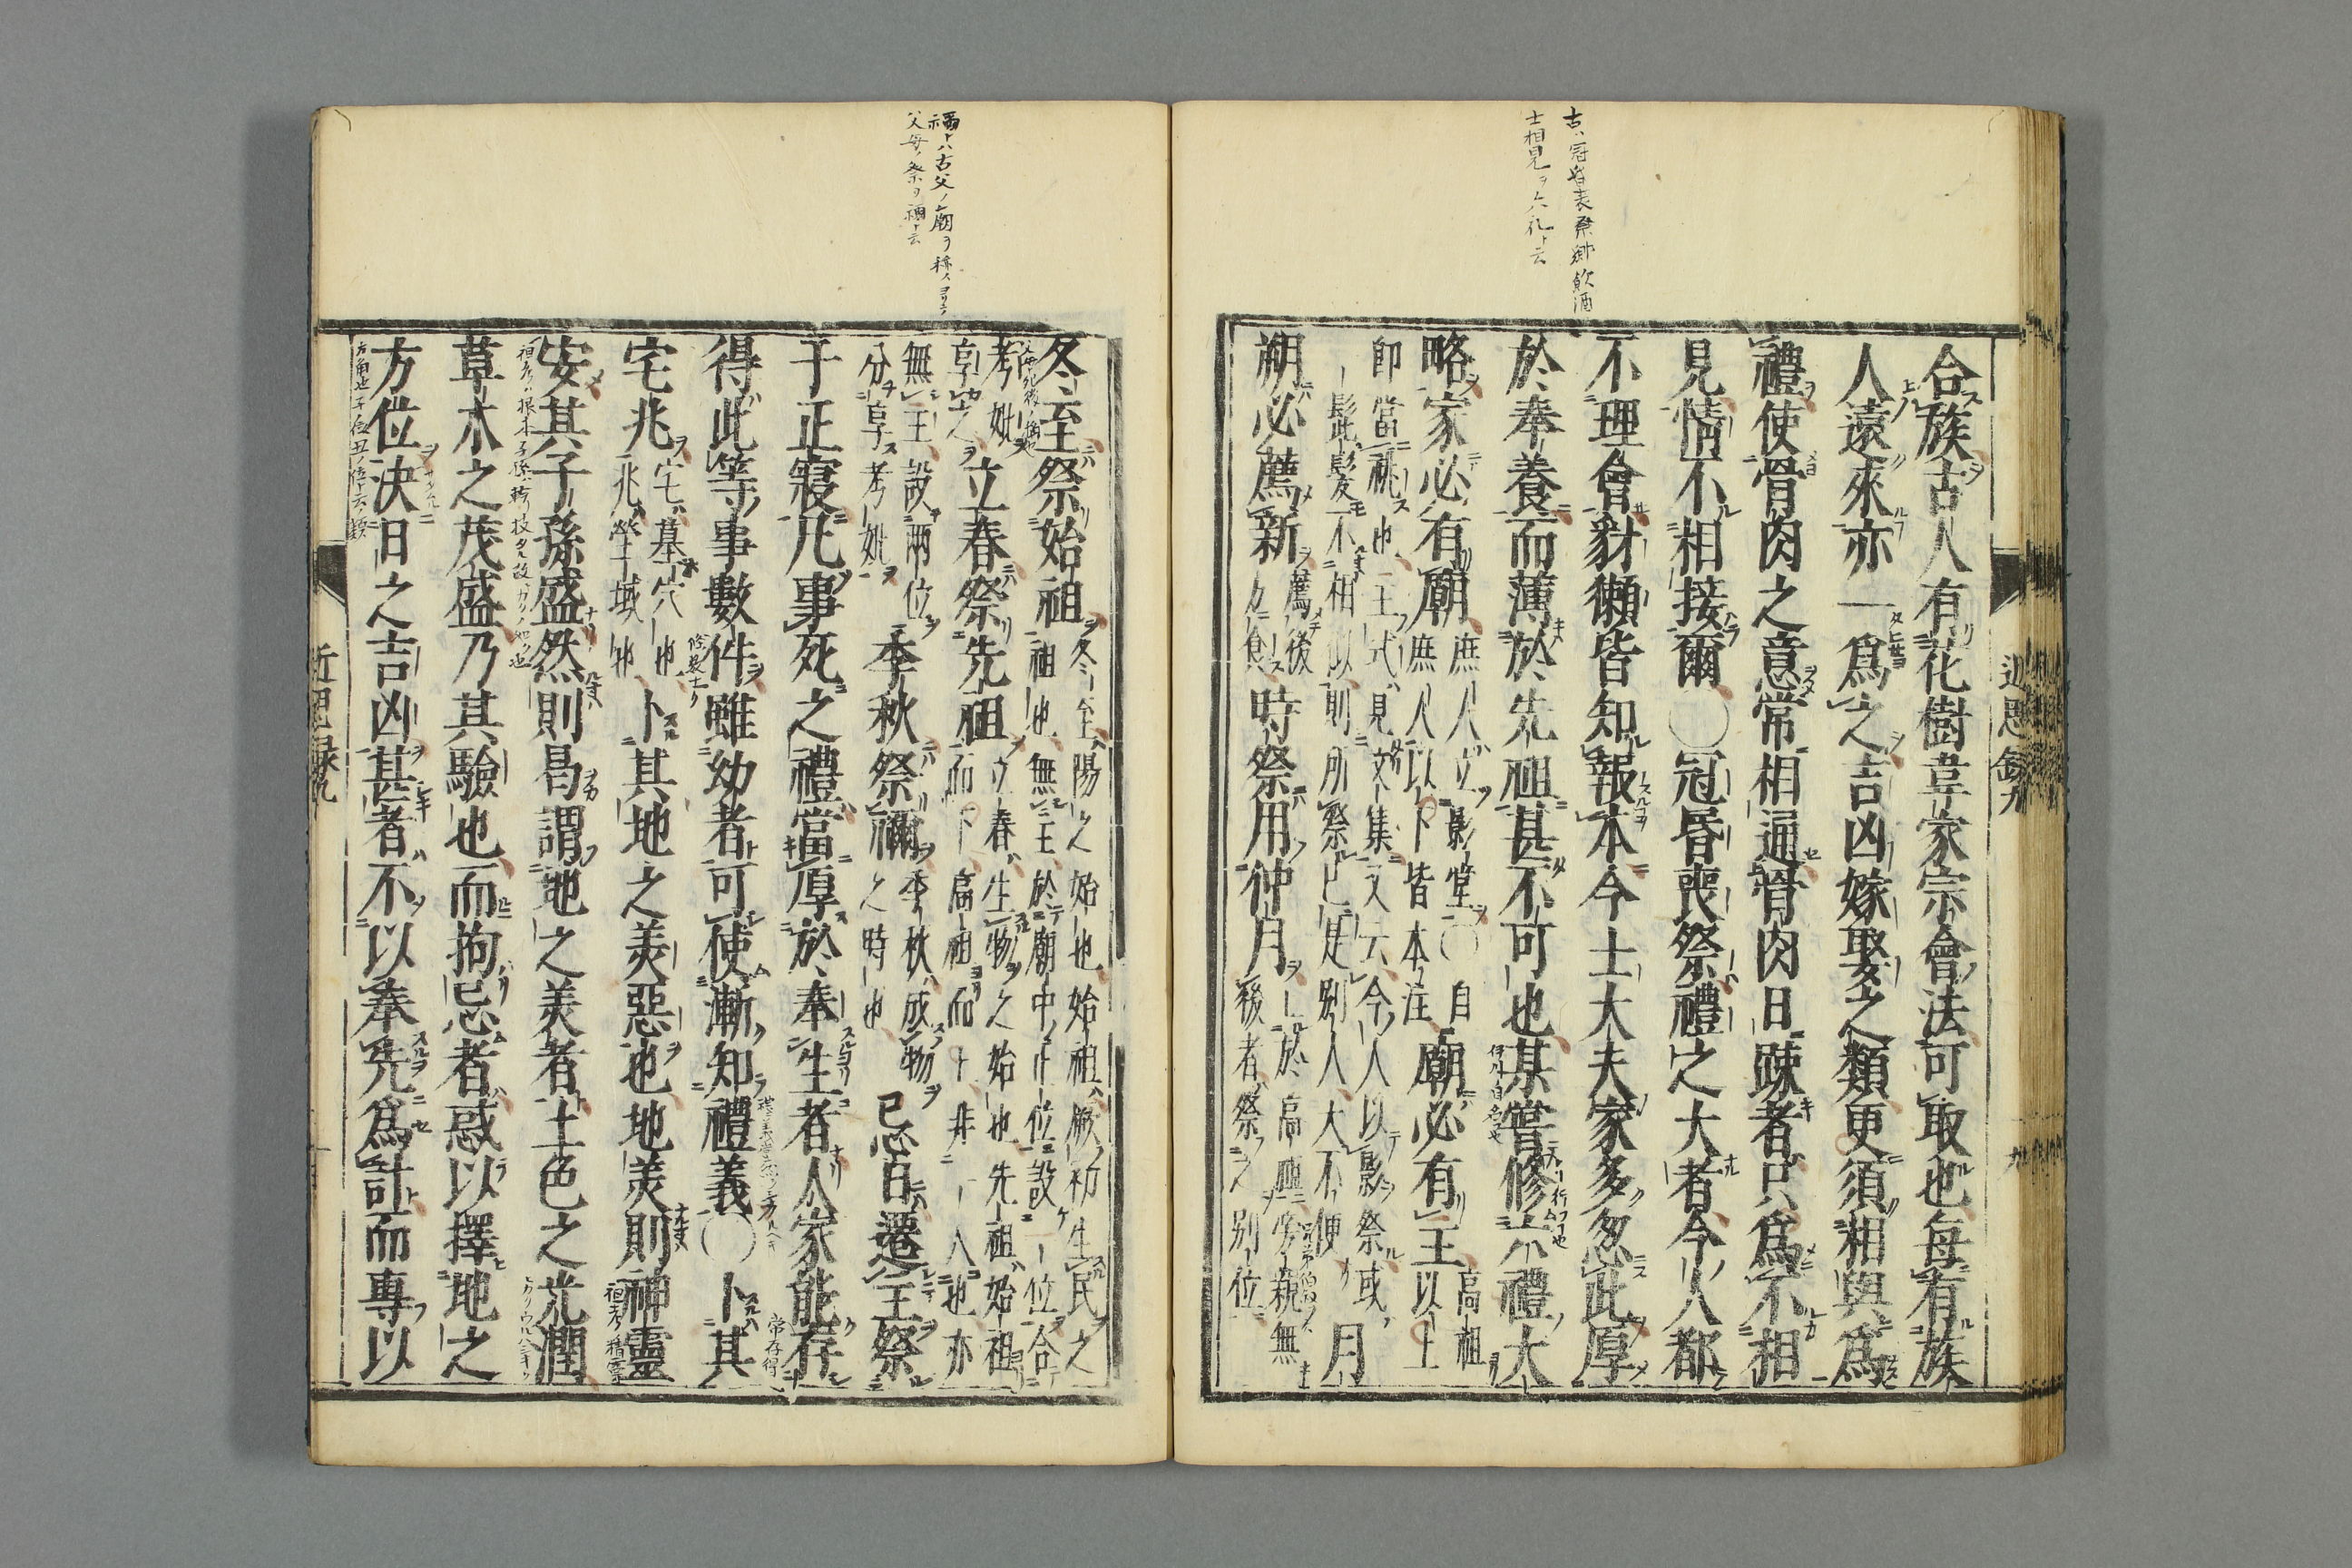 古ハ冠昏喪祭鄉飲酒
士相見ヲ六礼ト云
近思録九
九
合族古人有花樹韋家宗會法可取也每有族
人遠來亦一爲之吉凶嫁娶之類更須相與爲
禮使骨肉之意常相通骨肉日踈者只爲不相
見情不相接爾〇冠昏喪祭禮之大者今人都
不理會豺獺皆知報本今士大夫家多忽此厚
於奉養而薄於先祖甚不可也某嘗修六禮大
略家必有廟
庶人立影堂〇自
庶人以下皆本注
廟必有主
高祖以上
即當祧也主式見文集又云今人以影祭或
一髭髮不相似則所祭已是別人大不便
月
朔必薦新
薦後
方食
時祭用仲月
止於高祖旁親無
後者祭之別位
禰トハ古父ノ廟ヲ称スヨリテ
父母ノ祭ヲ禰ト云
冬至祭始祖
冬至陽之始也始祖厥初生民之
祖也無主於廟中正位設一位合
考妣
享之
立春祭先祖
立春生物之始也先祖始祖
而下高祖而上非一人也亦
無主設兩位
分享考妣
季秋祭禰
季秋成物
之時也
忌日遷主祭
于正寢凡事死之禮當厚於奉生者人家能存
得此等事數件雖幼者可使漸知禮義〇卜其
宅兆
宅墓穴也
兆塋域也
卜其地之美惡也地美則神靈
安其子孫盛然則曷謂地之美者土色之光潤
草木之茂盛乃其驗也而拘忌者惑以擇地之
方位決日之吉凶甚者不以奉先爲計而專以
近思録九